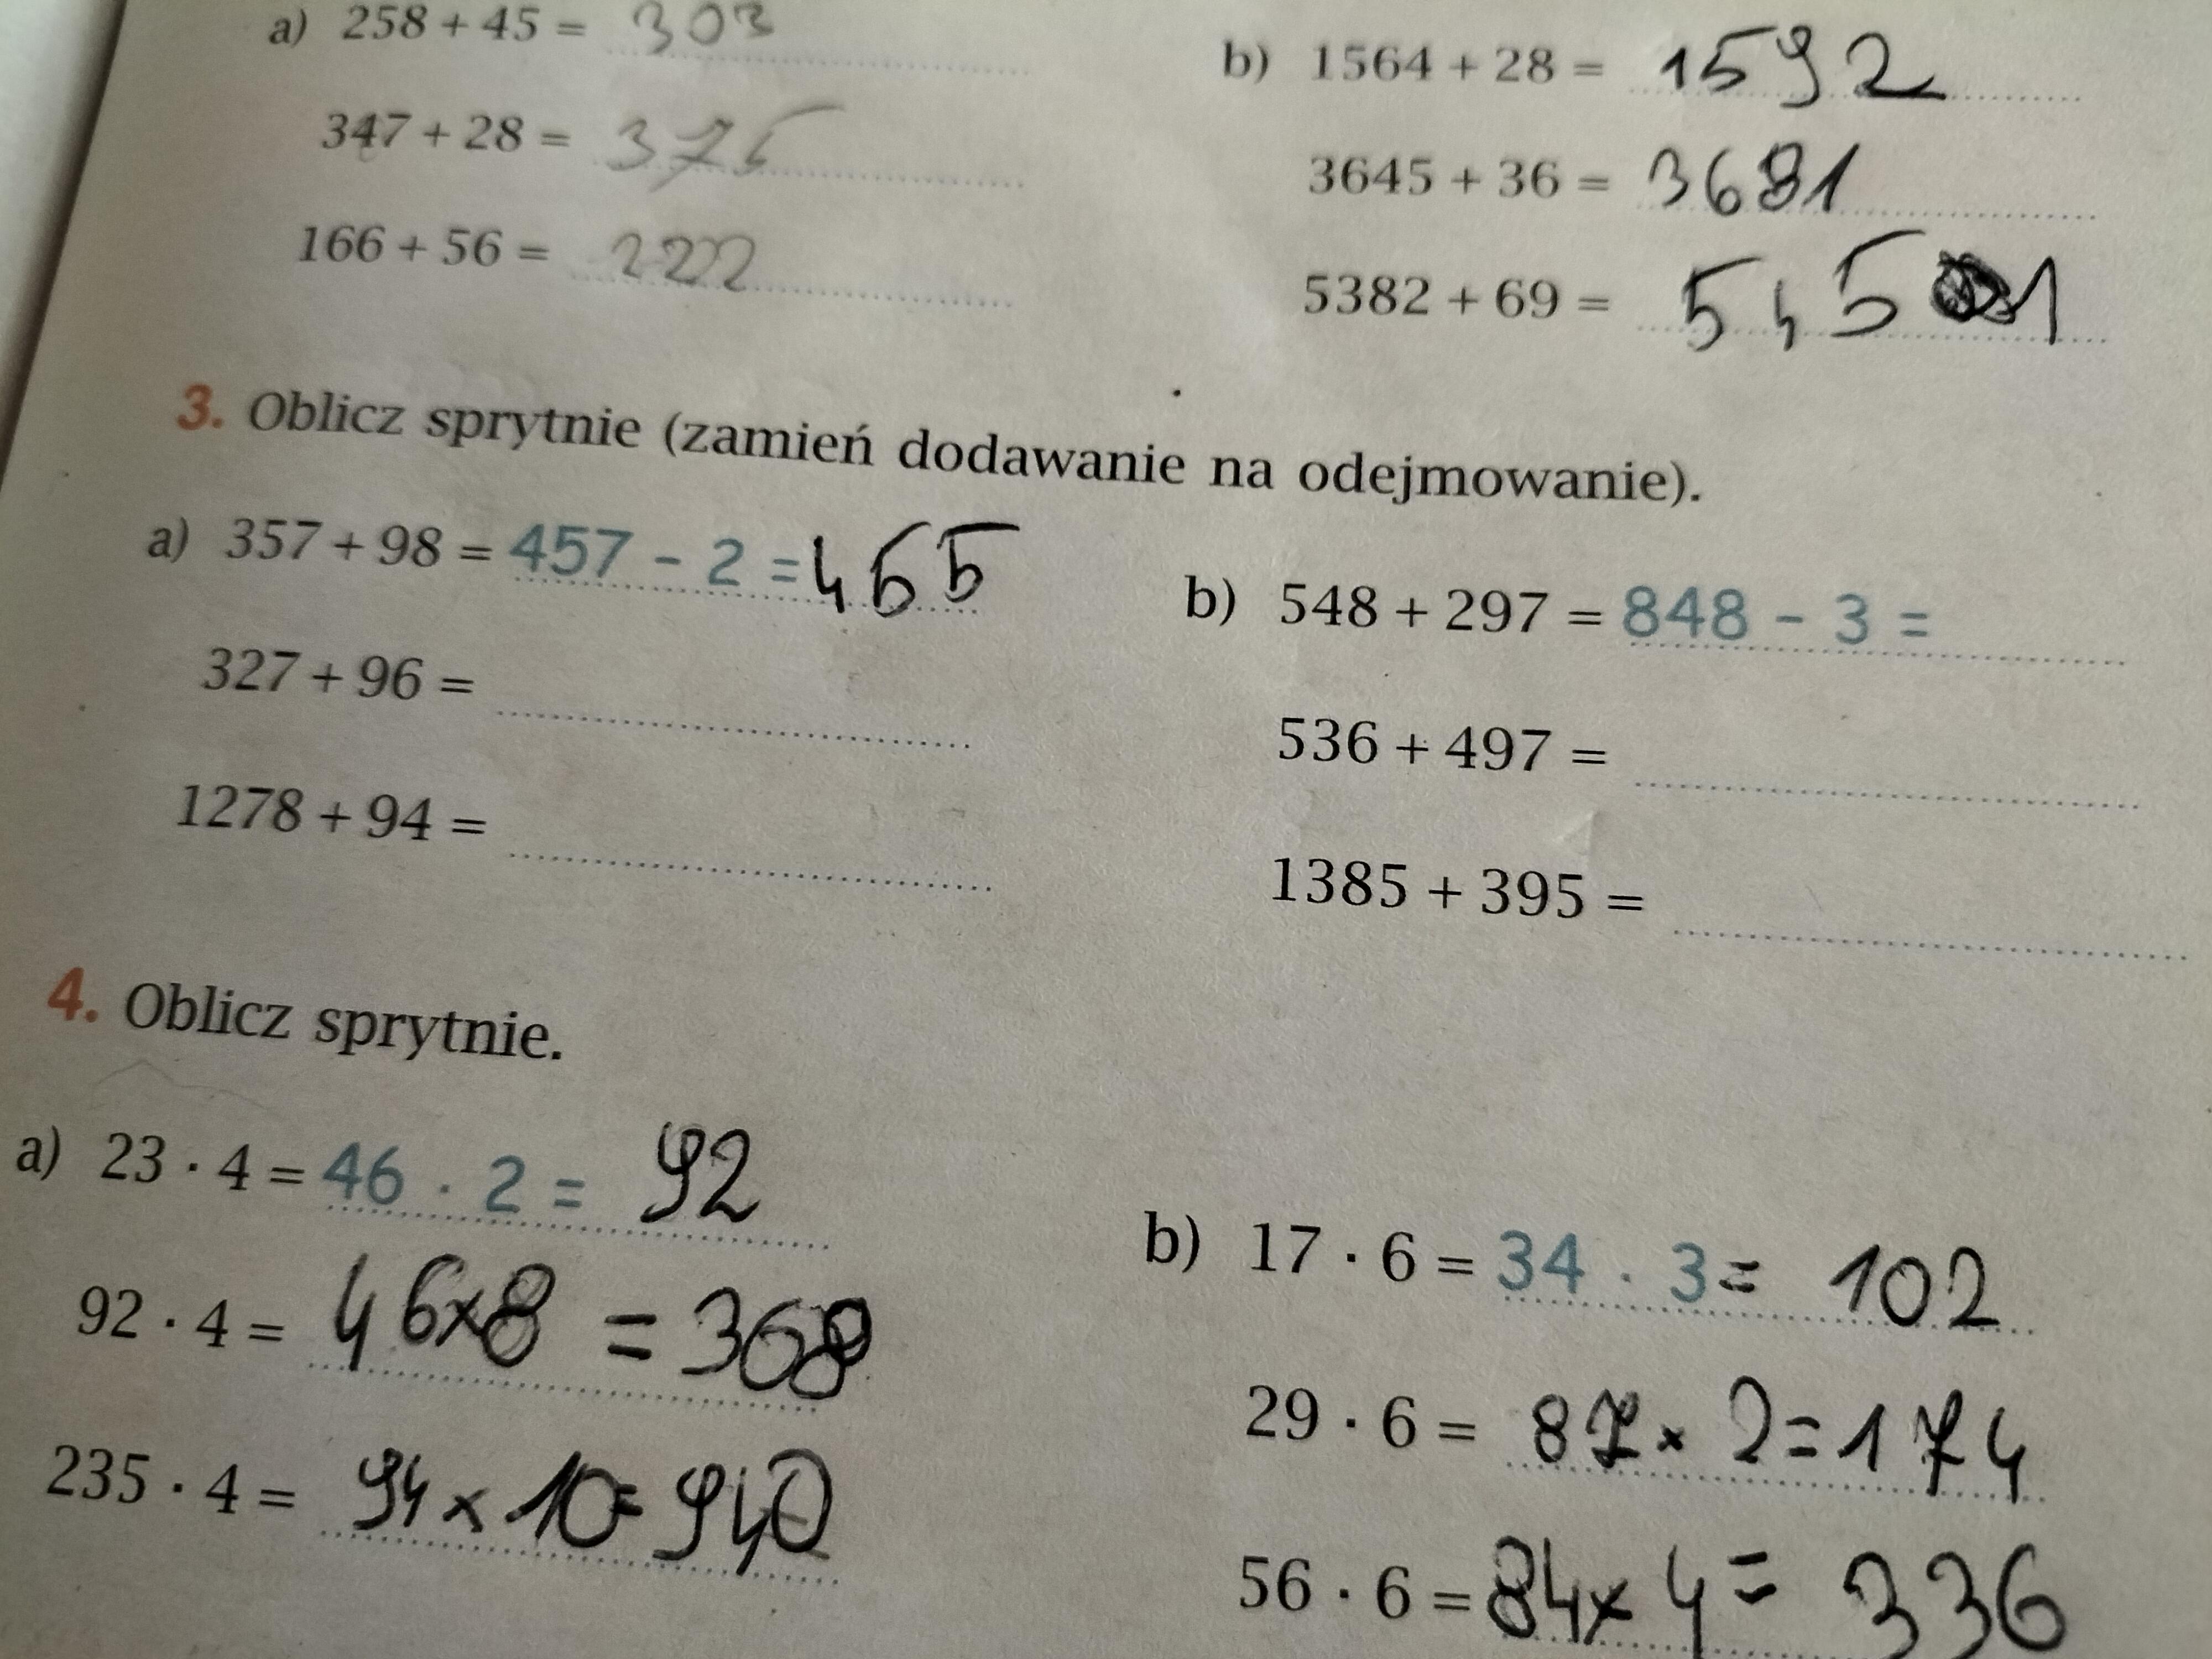 a) 258 + 45 = 303
347 + 28 = 375
166 + 56 = 222
b) 1564 + 28 = 1592
3645 + 36 = 3681
5382 + 69 = 5451
3. Oblicz sprytnie (zamień dodawanie na odejmowanie).
a) 357 + 98 = 457 - 2 = 455
327 + 96 =
1278 + 94 =
b) 548 + 297 = 848 - 3 =
536 + 497 =
1385 + 395 =
4. Oblicz sprytnie.
a) 23 · 4 = 46 · 2 = 92
92 · 4 = 46x8 = 368
235 · 4 = 94 x 10 = 940
b) 17 · 6 = 34 · 3 = 102
29 · 6 = 87 x 2 = 174
56 · 6 = 84 x 4 = 336